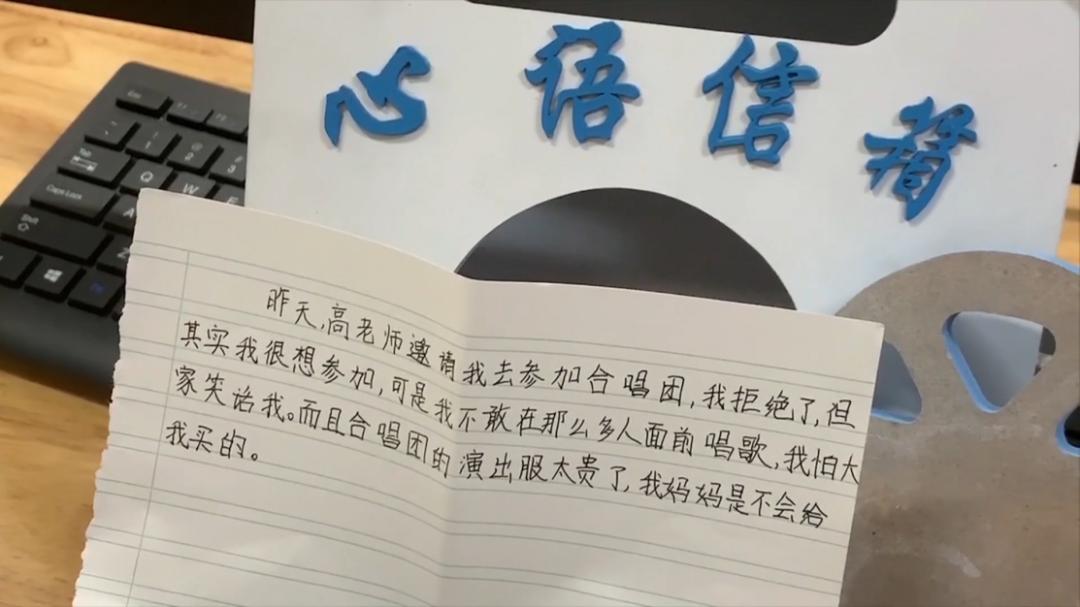 心语信箱
昨天,高老师邀请我去参加合唱团,我拒绝了,但
其实我很想参加,可是我不敢在那么多人面前唱歌,我怕大
家失诒我。而且合唱团的演出服太贵了,我妈妈是不会给
我买的。
Esc
1 2 3
Tab Q W E
Caps Lock A
Shift Z